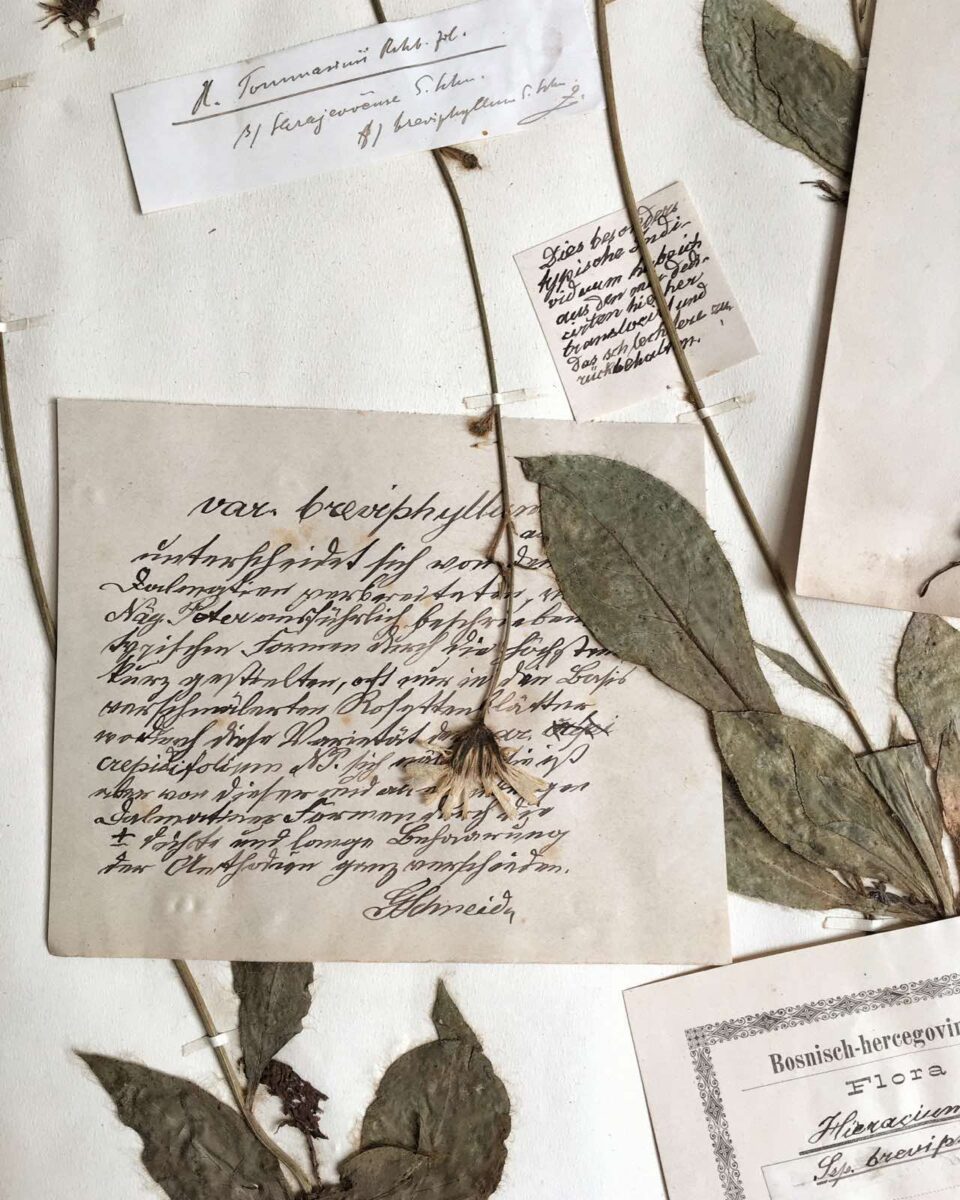 H. Tommasinii Rchb. fil.
β) Serajevoënse G. Schn.
β) breviphyllum G. Schn.
Dies besonders
typische Indi-
viduum habe ich
aus den mir dedi-
cirten hierher
translocirt und
das schlechtere zu-
rückbehalten.
var. breviphyllum
unterscheidet sich von den
Dalmatien verbreiteten,
Näg. Peter ausführlich beschrieben
typischen Formen durch die höchstens
kurz gestielten, oft nur in den Basis
verschmälerten Rosettenblätter,
wodurch diese Varietät
crepidifolium NP. sich
aber von dieser und
Dalmatiner Formen durch die
± dichte und lange Behaarung
der Anthodien ganz verschieden.
GSchneider
Bosnisch-hercegovin
Flora
Hieracium
Ssp. brevip